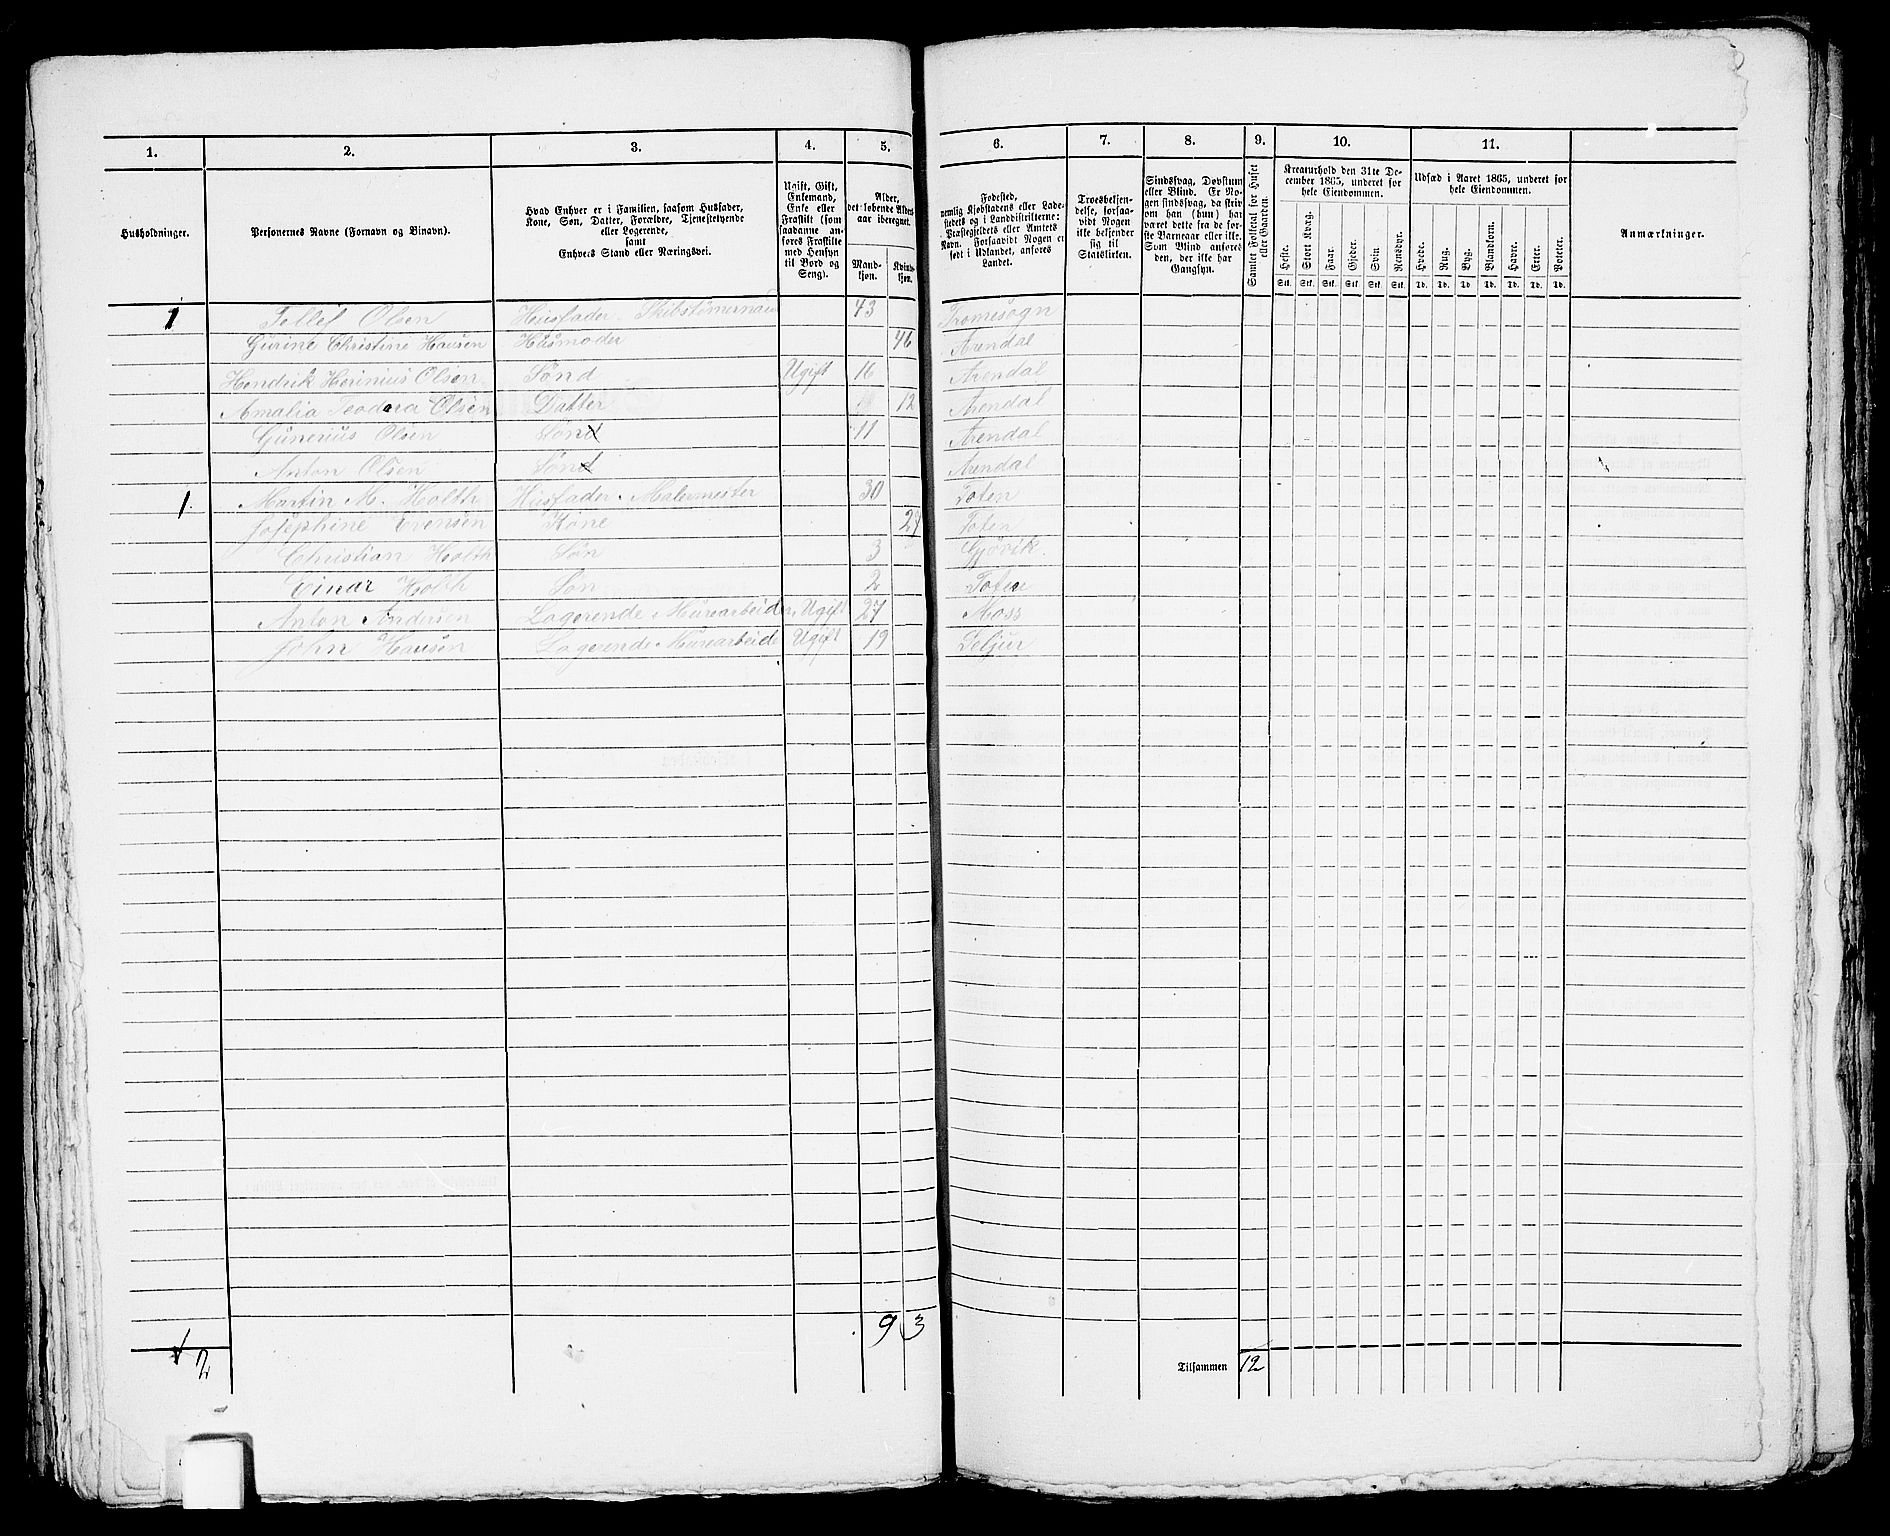 1. 2. 3. 4. 5. 6. 7. 8. 9. 10. 11.
Husholdninger.
Personernes Navne (Fornavn og Binavn).
Hvad Enhver er i Familien, saasom Husfader,
Kone, Søn, Datter, Forældre, Tjenestetyende
eller Logerende,
samt
Enhvers Stand eller Næringsvei.
Ugift, Gift,
Enkemand,
Enke eller
Fraskilt (som
saadanne an-
føres Fraskilte
med Hensyn
til Bord og
Seng).
Alder,
det løbende Alders-
aar iberegnet.
Mand-
kjøn.
Kvinde-
kjøn.
Fødested,
nemlig Kjøbstadens eller Lade-
stedets og i Landdistrikterne:
Præstegjeldets eller Amtets
Navn. Forsaavidt Nogen er
født i Udlandet, anføres
Landet.
Troesbekjen-
delse, forsaa-
vidt Nogen
ikke bekjender
sig til
Statskirken.
Sindssvag, Døvstum
eller Blind. Er No-
gen sindssvag, da skriv
om han (hun) har
været dette fra de før-
ste Barneaar eller ikke.
Som Blind anføres
den, der ikke har
Gangsyn.
Samlet Folketal for Huset
eller Gaarden.
Kreaturhold den 31te De-
cember 1865, underet for
hele Eiendommen.
Heste. Stort Kvæg. Faar. Gjeder. Svin. Rensdyr.
Stk. Stk. Stk. Stk. Stk. Stk.
Udsæd i Aaret 1865, underet for
hele Eiendommen.
Hvede. Rug. Byg. Blandkorn. Havre. Erter. Poteter.
Td. Td. Td. Td. Td. Td. Td.
Anmærkninger.
1 Tellef Olsen Husfader. 43 Tromøsogn
Gurine Christine Hansen Husmoder 46 Arendal
Hendrik Herinius Olsen Sønd Ugift 16 Arendal
Amalia Teodora Olsen Datter 12 Arendal
Gunerius Olsen Sønd 11 Arendal
Anton Olsen Sønd Arendal
1. Martin M. Holth Husfader. Malermester 30 Toten
Josephine Evensen Kone Toten
Christian Holth Søn 3 Gjøvik.
Einar Holth Søn 2 Toten
Anton Andersen Logerende Murearbeider, Ugift 27 Moss
John Hansen Logerende Murearbeide Ugift 19
9 3
Tilsammen 12
2